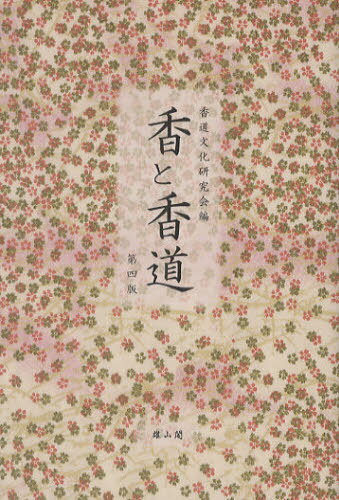 香道文化研究会編
香と香道
第四版
雄山閣